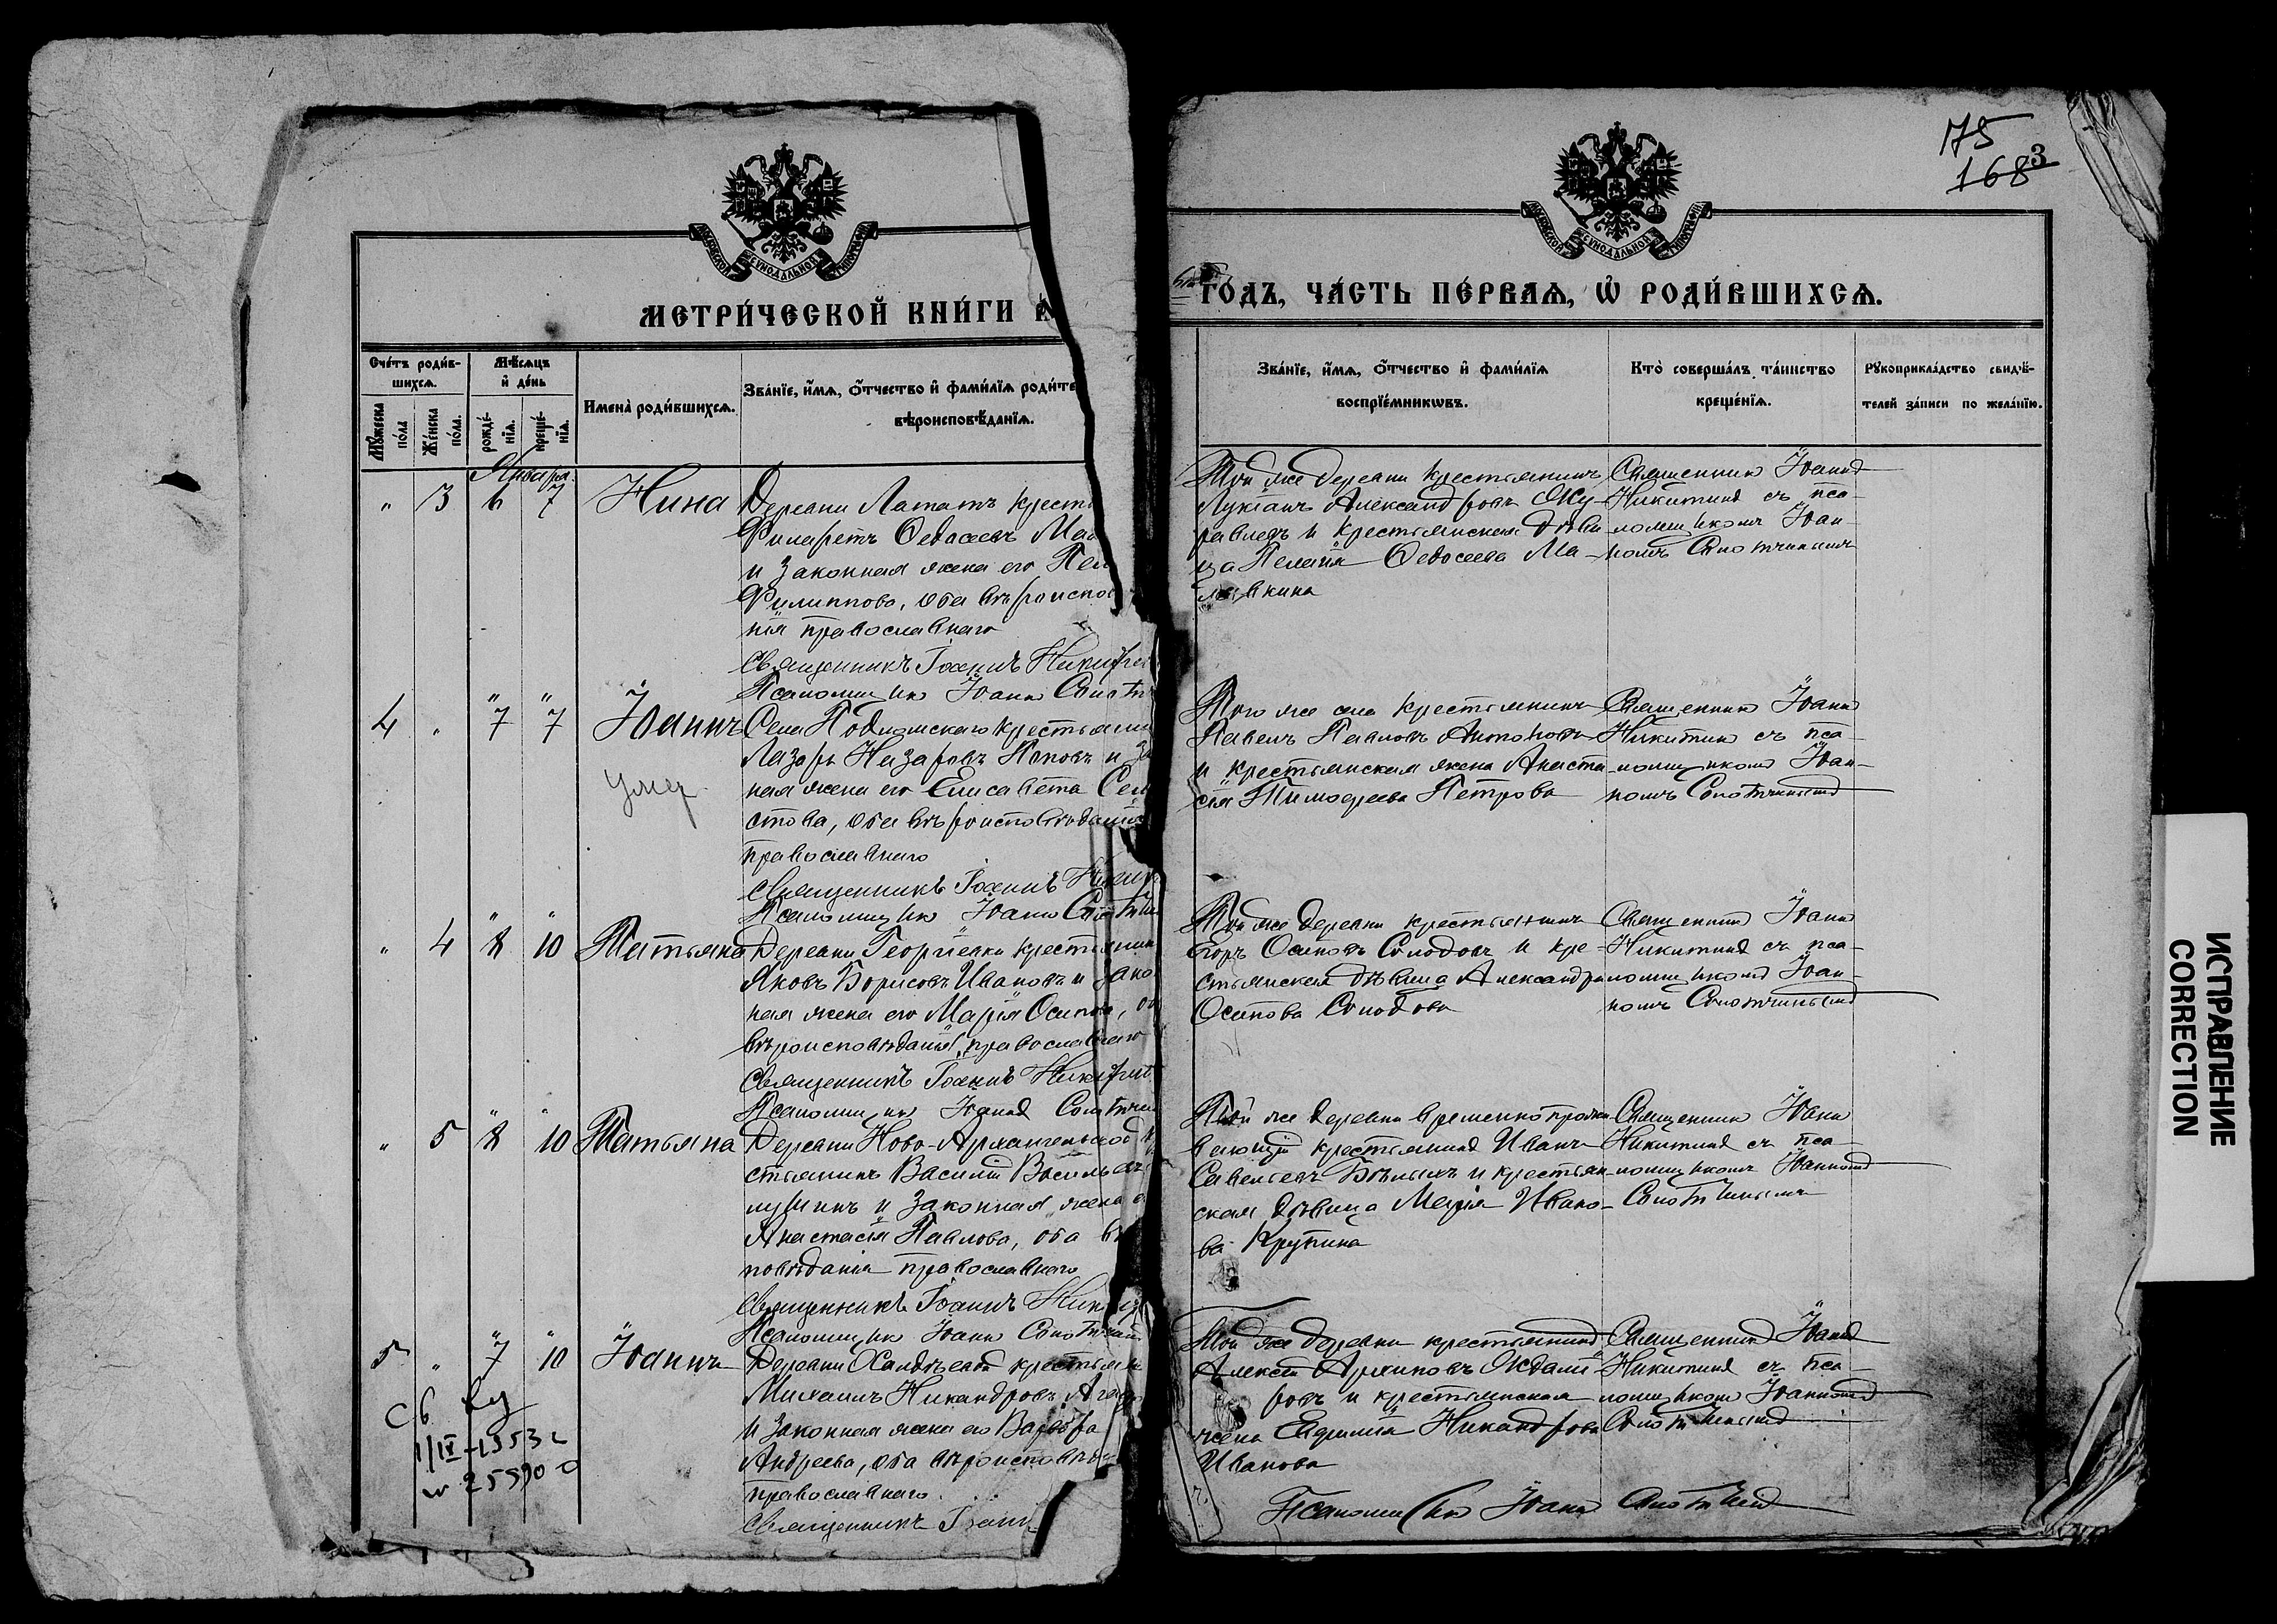 175
168 3
МОСКОВСКОЙ СѴНОДАЛЬНОЙ ТИПОГРАФІИ
МОСКОВСКОЙ СѴНОДАЛЬНОЙ ТИПОГРАФІИ
МЕТРИ́ЧЕСКОЙ КНИ́ГИ
ГО́ДЪ, ЧА́СТЬ ПЕ́РВАѦ, Ѡ҆ РОДИ́ВШИХСѦ.
Сче́тъ роди́в-
шихсѧ.
Мꙋ́жеска
по́ла
Же́нска
по́ла.
Мѣ́сѧцъ
и҆ де́нь
рожде́-
нїѧ.
креще́-
нїѧ.
И҆мена̀ роди́вшихсѧ.
Зва́нїе, и҆́мѧ, ѻ҆́тчество и҆ фами́лїѧ роди́те
вѣроисповѣ́данїѧ.
Зва́нїе, и҆́мѧ, ѻ҆́тчество и҆ фами́лїѧ
воспрїе́мникѡвъ.
Кто̀ соверша́лъ та́инство
креще́нїѧ.
Рꙋкоприкла́дство свидѣ́-
телей за́писи по жела́нїю.
Января.
" 3 6 7 Нина
Деревни Лататъ крестья
Филаретъ Ѳедосеевъ Ма
и законная жена его Пел
Филиппова, оба вѣроиспо
нія православнаго
Священникъ Іоаннъ Никит
Псаломщикъ Іоаннъ
Той же деревни крестьянинъ
Лукіанъ Александровъ Жу-
равлевъ и крестьянская дѣви
ца Пелагія Ѳедосеева Ма-
кина
Священникъ Іоаннъ
Никитинъ съ пса-
ломщикомъ Іоан-
номъ
4 " 7 7 Іоаннъ
Умер
Села Подломскаго крестьяни
Лазарь Назаровъ Поповъ и за
ная жена его Елисавета Сев
стова, оба вѣроисповѣданія
православнаго
Священникъ Іоаннъ Ники
Псаломщикъ Іоаннъ
Того же села крестьянинъ
Павелъ Павловъ Антоновъ
и крестьянская жена Анаста
сія Тимоѳеева Петрова
Священникъ Іоаннъ
Никитинъ съ пса-
ломщикомъ Іоан-
номъ
" 4 8 10 Татьяна
Деревни Георгіевки крестьянин
Яковъ Борисовъ Ивановъ и зако
ная жена его Марія Осипова, об
вѣроисповѣданія православнаго
Священникъ Іоаннъ Никит
Псаломщикъ Іоаннъ
Той же деревни крестьянинъ
Егоръ Осиповъ Солодовъ и кре-
стьянская дѣвица Александра
Осипова Солодова
Священникъ Іоаннъ
Никитинъ съ пса-
ломщикомъ Іоан-
номъ
" 5 8 10 Татьяна
Деревни Ново-Архангельской к
стьянинъ Василій Васильевъ
и законная жена е
Анастасія Павлова, оба вѣ
повѣданія православнаго
Священникъ Іоаннъ Никит
Псаломщикъ Іоаннъ
Той же деревни временно прожи
вающій крестьянинъ Иванъ
Савельевъ Бѣлыхъ и крестьян
ская дѣвица Марія Ивано-
ва Крупина
Священникъ Іоаннъ
Никитинъ съ пса-
ломщикомъ Іоанномъ
5 " 7 10 Іоаннъ
1/IV-1953 г
Деревни Халдѣевой крестьяни
Михаилъ Никандровъ
и законная жена его Варвара
Андреева, оба вѣроисповѣд
православнаго.
Священникъ Іоанн
Той же деревни крестьянинъ
Алексѣй Архиповъ Ждано
ровъ и крестьянская
жена Евдокія Никандрова
Иванова
Священникъ Іоаннъ
Никитинъ съ пса-
ломщикомъ Іоанномъ
Псаломщикъ Іоаннъ
ИСПРАВЛЕНИЕ
CORRECTION